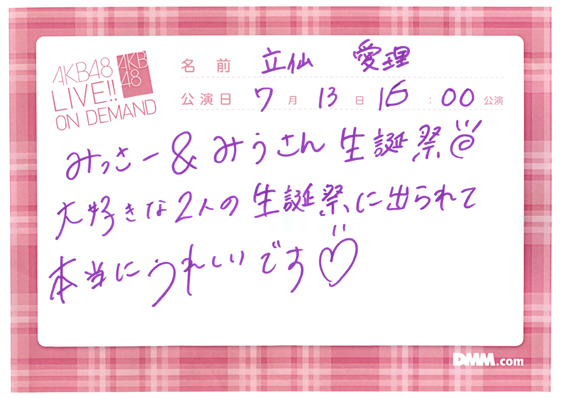 AKB48
LIVE!!
ON DEMAND
AKB
48
名前 立仙 愛理
公演日 7月 13日 16:00公演
みっさー&みうさん 生誕祭
大好きな2人の生誕祭に出られて
本当にうれしいです♡
DMM.com